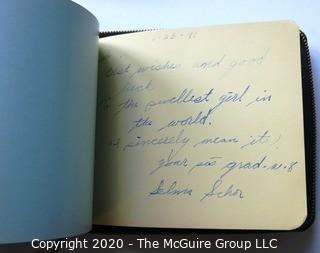 Best wishes and good
luck
to the swellest girl in
the world.
sincerely mean it)
Your
grad-
Selma Schor
Copyright © 2020 - The McGuire Group LLC